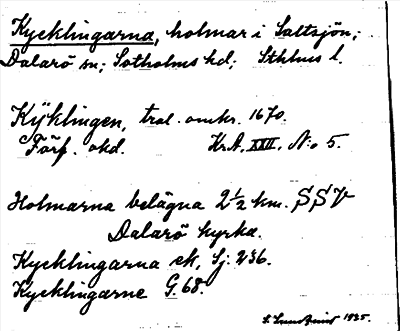 Kycklingarna, holmar i Saltsjön;
Dalarö sn; Sotholms hd; Sthlms l.
Kÿcklingen, trol. omkr. 1670.
Förf. okd. Kr.A. XXII. N:o 5.
Holmarna belägna 2½ km. SSV
Dalarö kyrka.
Kycklingarna ek, Sj. 236.
Kycklingarne G. 68.
1935.